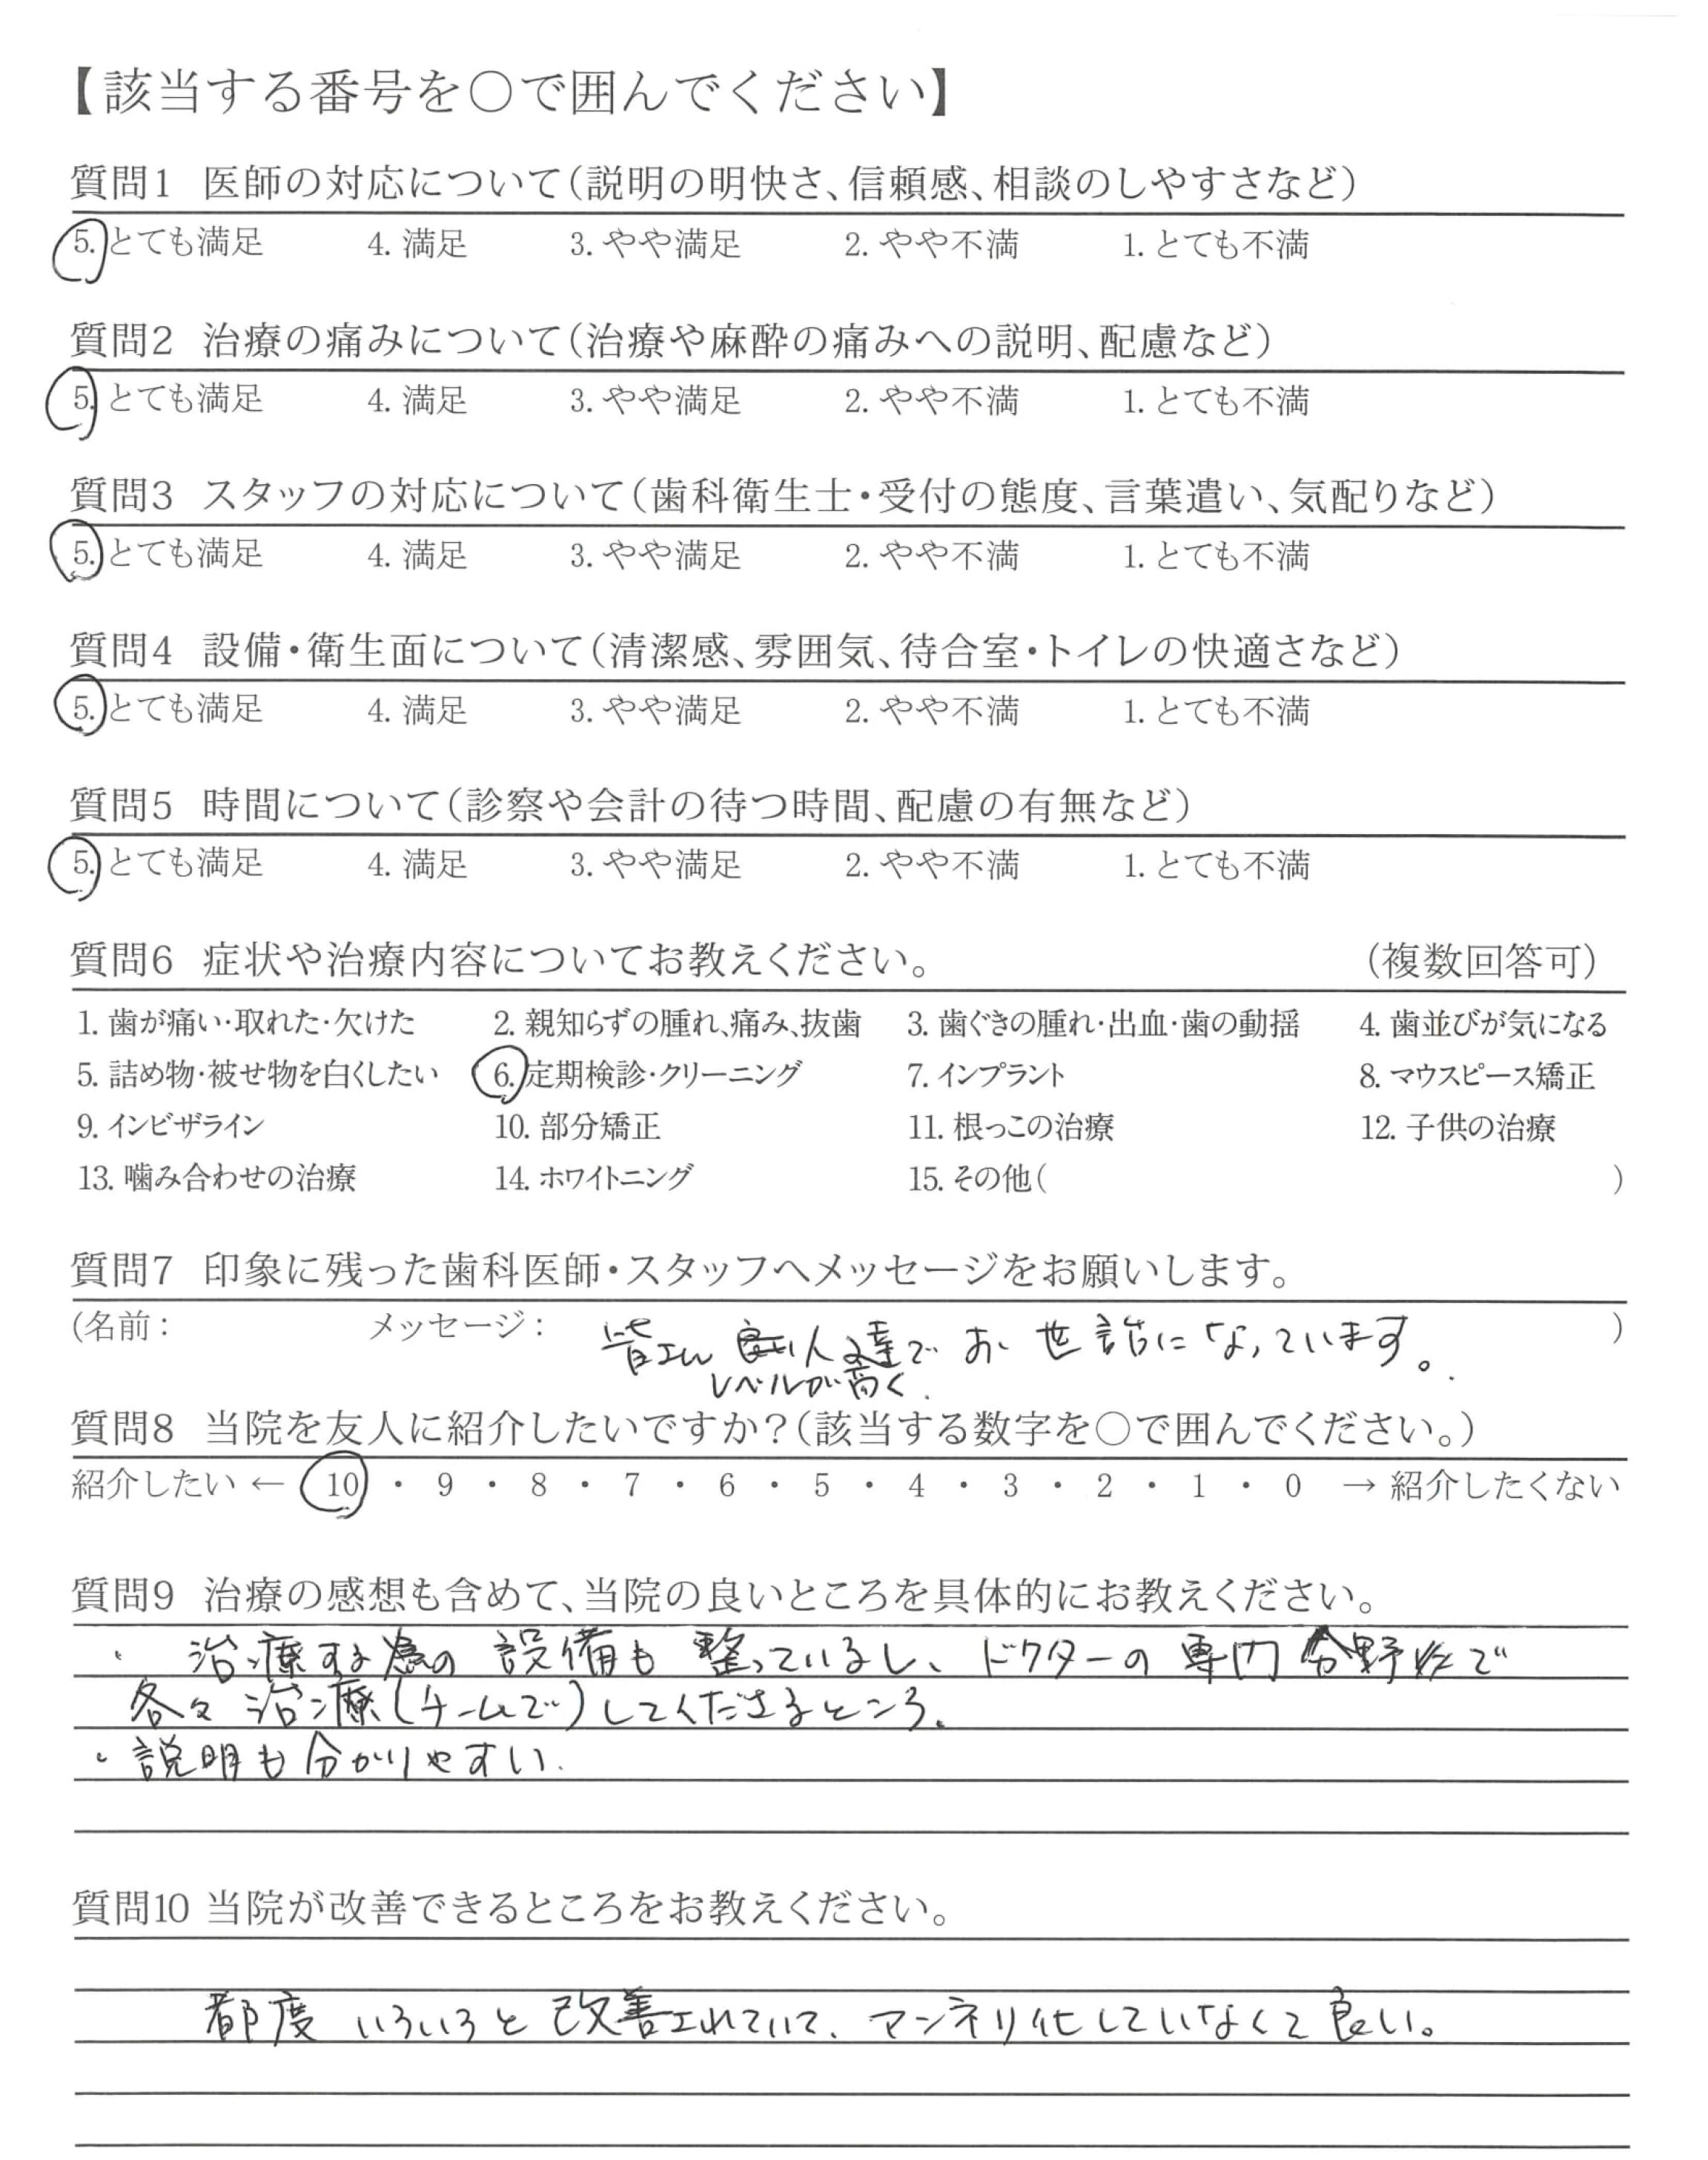 【該当する番号を〇で囲んでください】
質問1 医師の対応について(説明の明快さ、信頼感、相談のしやすさなど)
5. とても満足 4. 満足 3. やや満足 2. やや不満 1. とても不満
質問2 治療の痛みについて(治療や麻酔の痛みへの説明、配慮など)
5. とても満足 4. 満足 3. やや満足 2. やや不満 1. とても不満
質問3 スタッフの対応について(歯科衛生士・受付の態度、言葉遣い、気配りなど)
5. とても満足 4. 満足 3. やや満足 2. やや不満 1. とても不満
質問4 設備・衛生面について(清潔感、雰囲気、待合室・トイレの快適さなど)
5. とても満足 4. 満足 3. やや満足 2. やや不満 1. とても不満
質問5 時間について(診察や会計の待つ時間、配慮の有無など)
5. とても満足 4. 満足 3. やや満足 2. やや不満 1. とても不満
質問6 症状や治療内容についてお教えください。 (複数回答可)
1. 歯が痛い・取れた・欠けた 2. 親知らずの腫れ、痛み、抜歯 3. 歯ぐきの腫れ・出血・歯の動揺 4. 歯並びが気になる
5. 詰め物・被せ物を白くしたい 6. 定期検診・クリーニング 7. インプラント 8. マウスピース矯正
9. インビザライン 10. 部分矯正 11. 根っこの治療 12. 子供の治療
13. 噛み合わせの治療 14. ホワイトニング 15. その他( )
質問7 印象に残った歯科医師・スタッフへメッセージをお願いします。
(名前: メッセージ: 皆さん 人達で お世話になっています。 )
レベルが高く.
質問8 当院を友人に紹介したいですか?(該当する数字を〇で囲んでください。)
紹介したい ← 10 ・ 9 ・ 8 ・ 7 ・ 6 ・ 5 ・ 4 ・ 3 ・ 2 ・ 1 ・ 0 → 紹介したくない
質問9 治療の感想も含めて、当院の良いところを具体的にお教えください。
・ 治療する為の 設備も 整っているし、ドクターの 専門 分野で
各々 治療(チームで)してくださるところ。
・説明も分かりやすい.
質問10 当院が改善できるところをお教えください。
都度 いろいろと 改善されていて、マンネリ化していなくて良い。